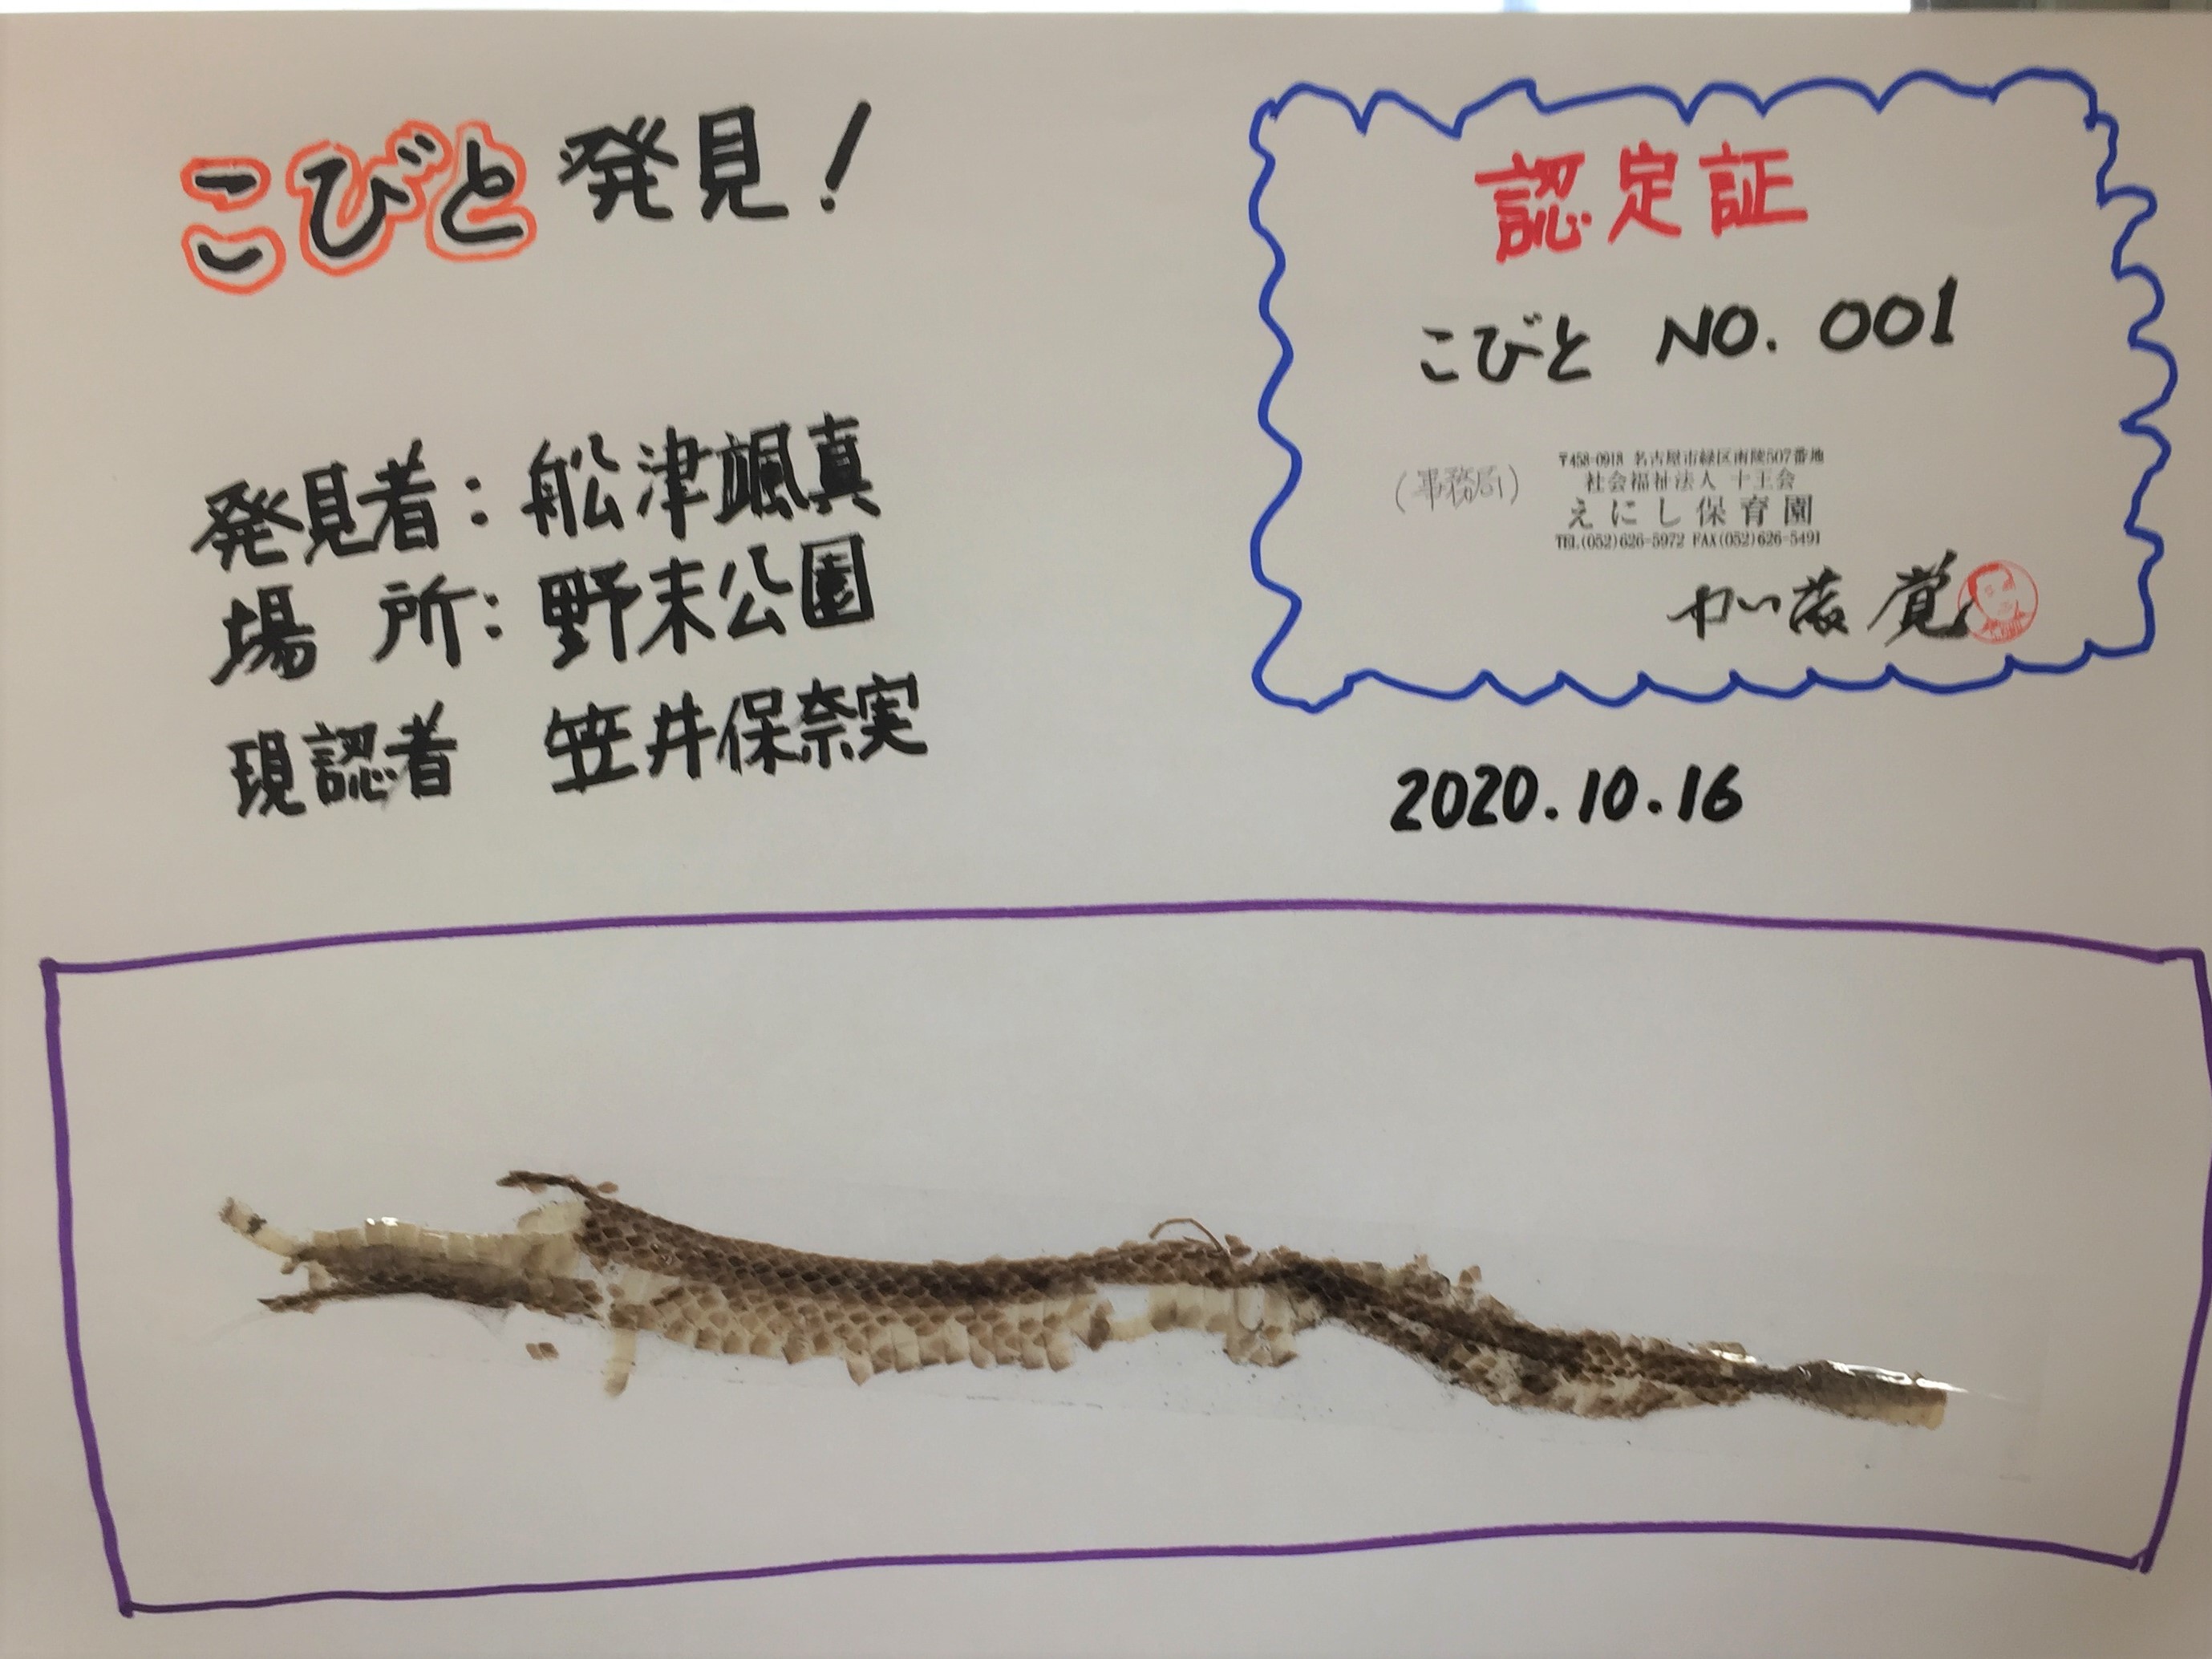 こびと発見!
発見者:舩津颯真
場 所:野末公園
現認者 笠井保奈実
認定証
こびと NO.001
(事務局)
〒458-0918 名古屋市緑区南陵507番地
社会福祉法人 十王会
えにし保育園
TEL(052)626-5972 FAX(052)626-5491
加藤 覚
2020.10.16